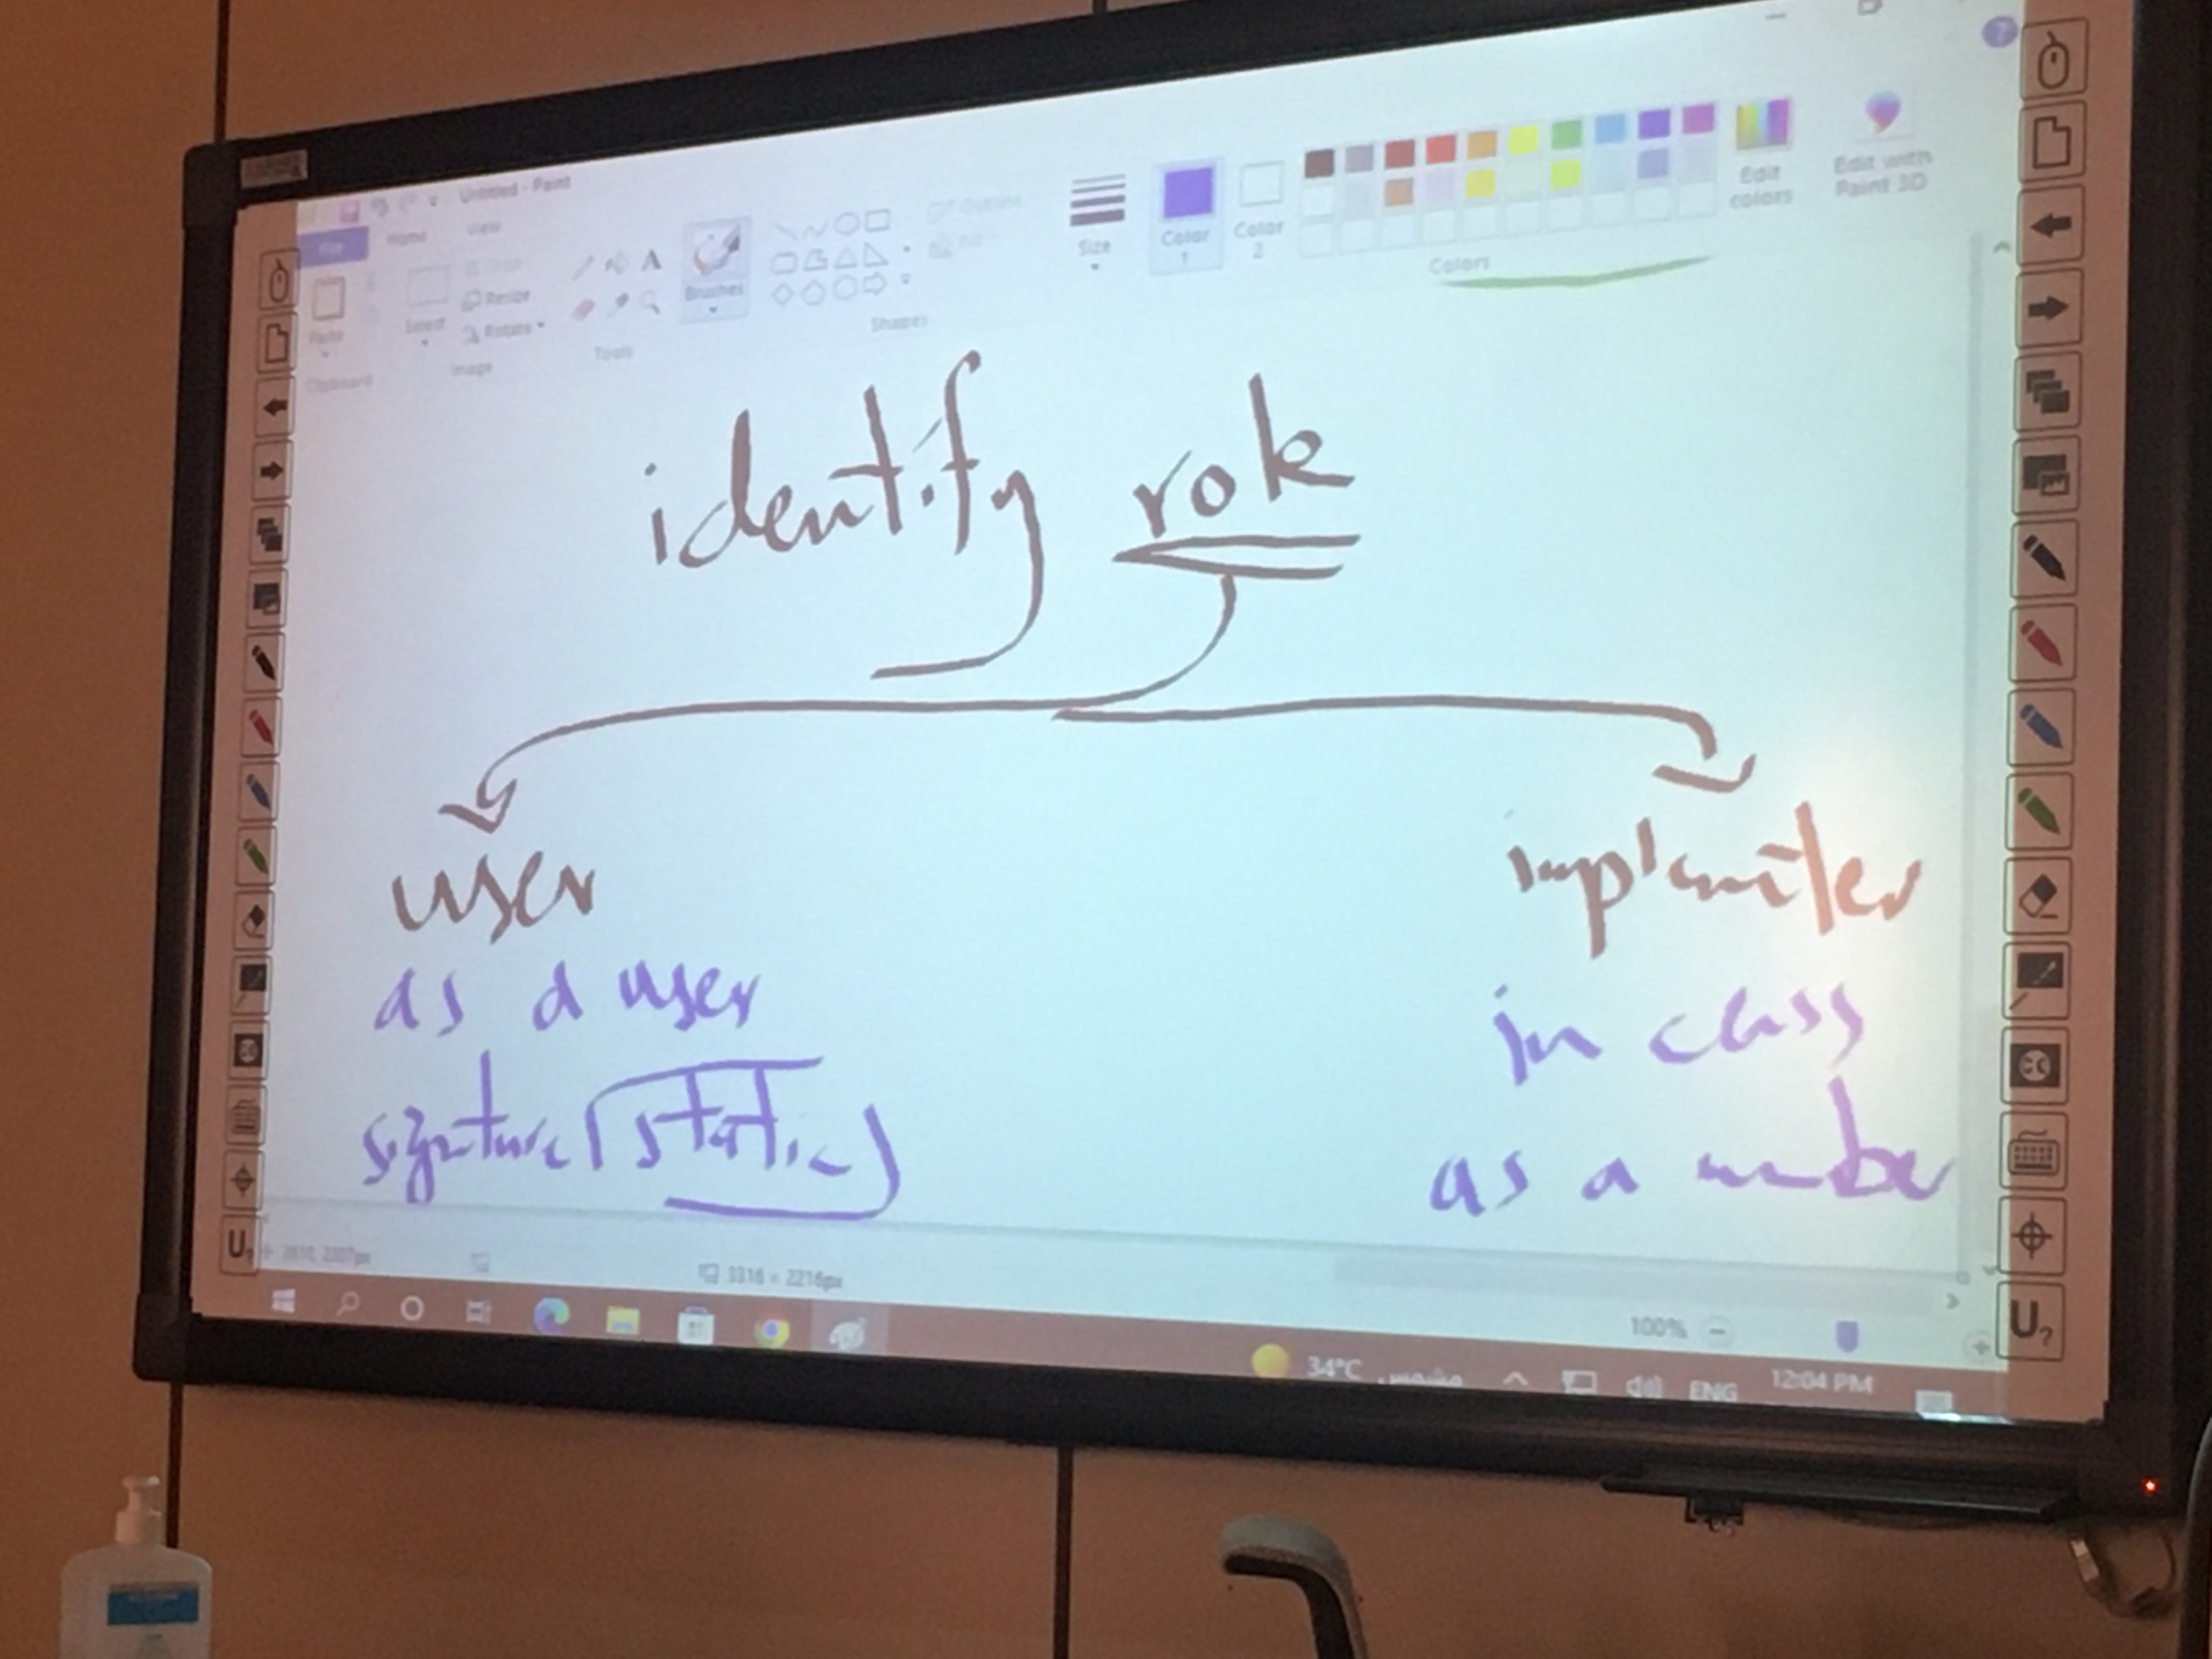 Untitled - Paint
File Home View
Paste
Clipboard
Select
Resize
Rotate
Image
Tools
Brushes
Shapes
Size
Color 1
Color 2
Colors
Edit colors
Edit with Paint 3D
identify role
user
as a user
signature (static)
implementer
in class
as a member
3316 × 2216px
100%
34°C
ENG
12:04 PM